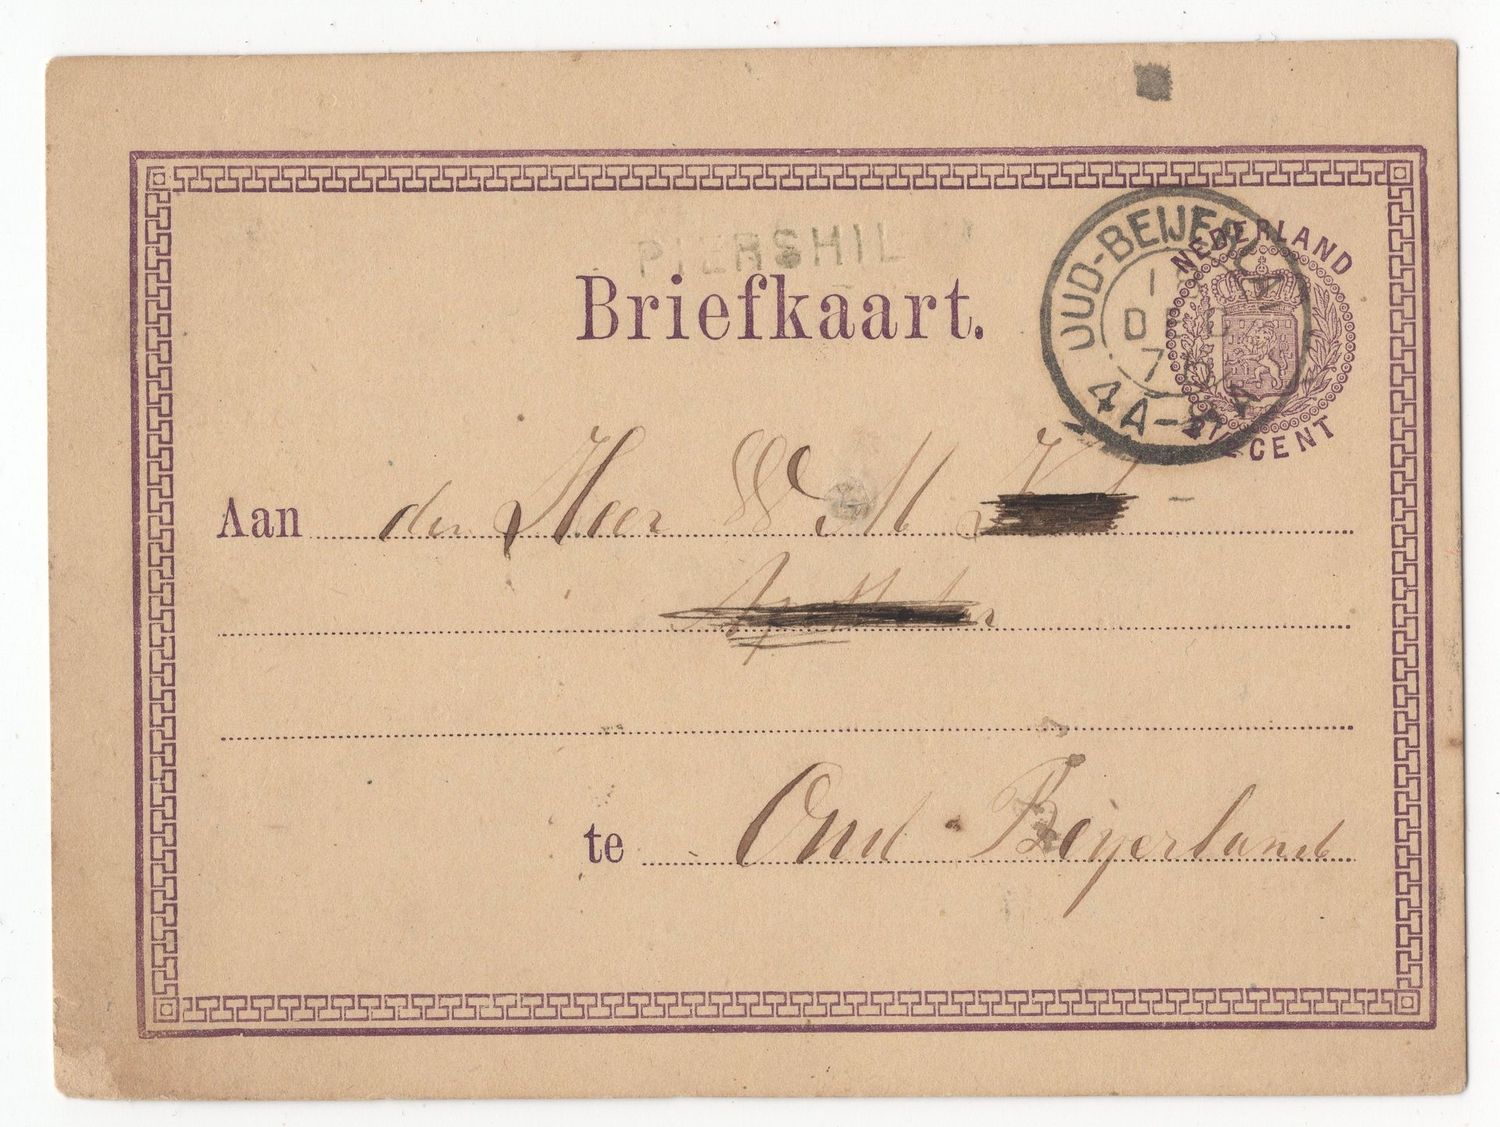 PIERSHIL
Briefkaart.
OUD-BEIJERLAND
DEC
4A-8A
NEDERLAND
CENT
Aan den Heer W M
te Oud-Beyerland